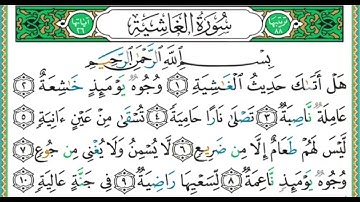 ترتيبها ٨٨ سُورَةُ الْغَاشِيَةِ آياتها ٢٦
بِسْمِ اللَّهِ الرَّحْمَٰنِ الرَّحِيمِ
هَلْ أَتَىٰكَ حَدِيثُ الْغَٰشِيَةِ ١ وُجُوهٌ يَوْمَئِذٍ خَٰشِعَةٌ ٢
عَامِلَةٌ نَّاصِبَةٌ ٣ تَصْلَىٰ نَارًا حَامِيَةً ٤ تُسْقَىٰ مِنْ عَيْنٍ ءَانِيَةٍ ٥
لَّيْسَ لَهُمْ طَعَامٌ إِلَّا مِن ضَرِيعٍ ٦ لَّا يُسْمِنُ وَلَا يُغْنِي مِن جُوعٍ ٧
وُجُوهٌ يَوْمَئِذٍ نَّاعِمَةٌ ٨ لِّسَعْيِهَا رَاضِيَةٌ ٩ فِي جَنَّةٍ عَالِيَةٍ ١٠